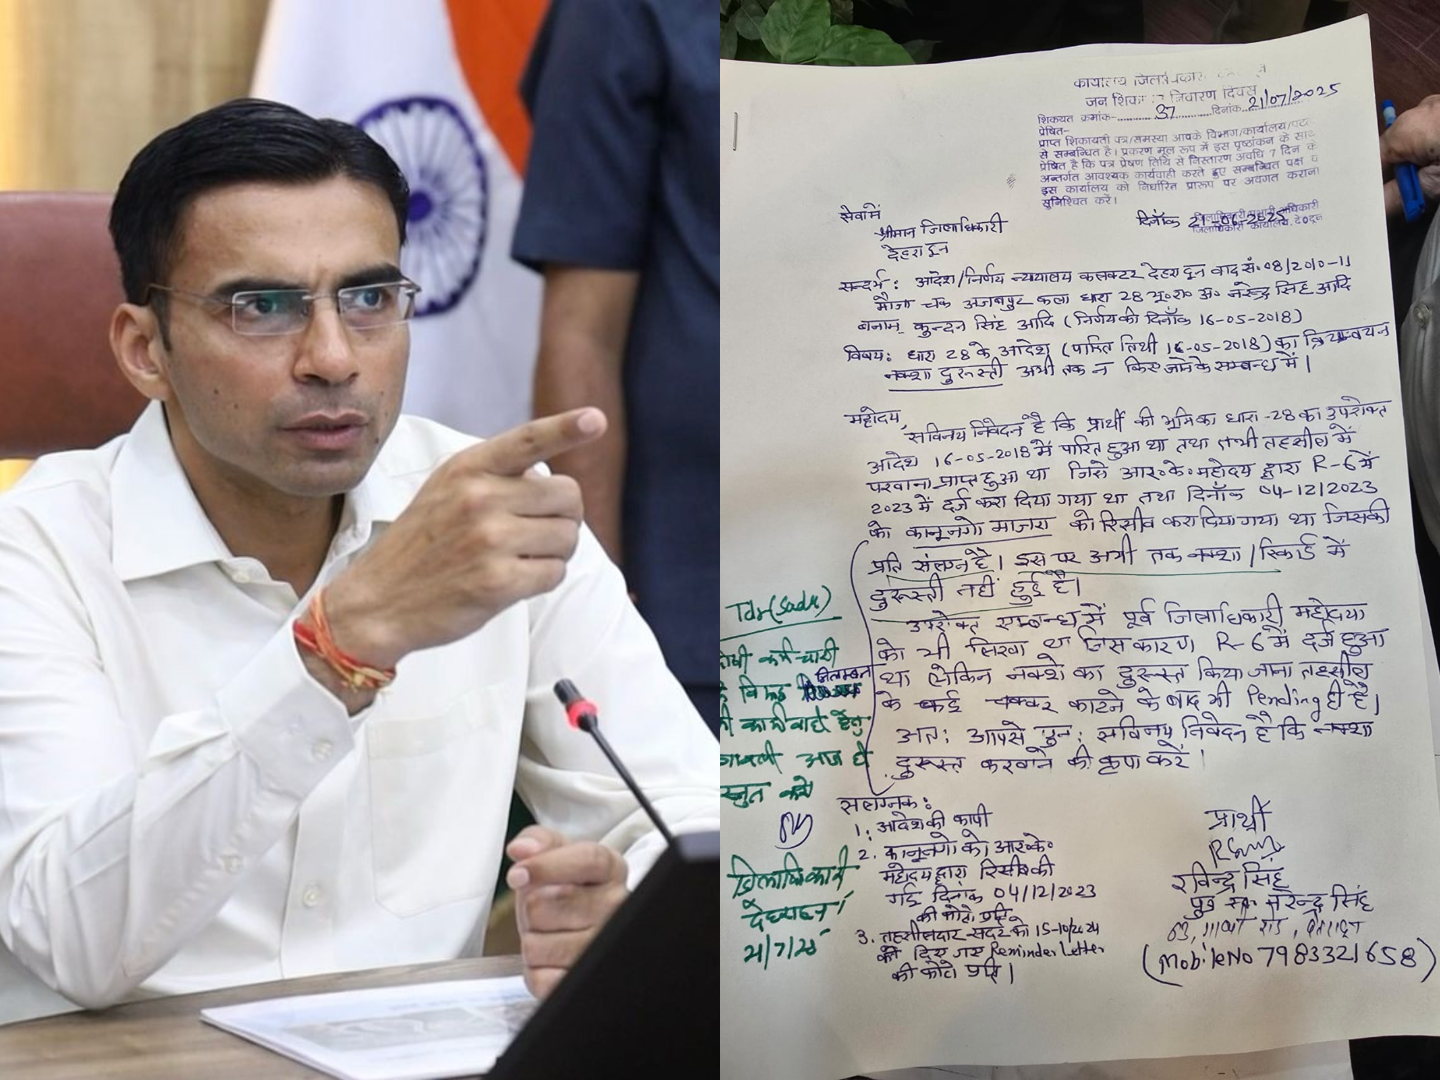 कार्यालय जिलाधिकारी
जन शिकायत निवारण दिवस
शिकयत क्रमांक- 37 दिनांक 21/07/2025
प्रेषित-
प्राप्त शिकायती पत्र/समस्या आपके विभाग/कार्यालय/पटल
से सम्बन्धित है। प्रकरण मूल रूप में इस पृष्ठांकन के साथ
प्रेषित है कि पत्र प्रेषण तिथि से निस्तारण अवधि 7 दिन के
अन्तर्गत आवश्यक कार्यवाही करते हुए सम्बन्धित पक्ष
इस कार्यालय को निर्धारित प्रारूप पर अवगत कराना
सुनिश्चित करें।
सेवामें
श्रीमान जिलाधिकारी
देहरादून
दिनाँक
सन्दर्भ: आदेश/निर्णय न्यायालय कलक्टर देहरादून वाद सं०08/2010-11
मौजा चक अजबपुर कला धारा 28 भू०रा० अ० नरेन्द्र सिंह आदि
बनाम कुन्दन सिंह आदि (निर्णय की दिनाँक 16-05-2018)
विषय: धारा 28 के आदेश (पारित तिथी 16-05-2018) का क्रियान्वयन
नक्शा दुरुस्ती अभी तक न किए जाने के सम्बन्ध में।
महोदय,
सविनय निवेदन है कि प्रार्थी की भूमि का धारा-28 का उपरोक्त
आदेश 16-05-2018 में पारित हुआ था तथा तभी तहसील में
परवाना प्राप्त हुआ था जिसे आर०के० महोदय द्वारा R-6 में
2023 में दर्ज करा दिया गया था तथा दिनाँक 04-12/2023
को कानूनगो माजरा को रिसीव करा दिया गया था जिसकी
प्रति संलग्न है। इस पर अभी तक नक्शा/रिकार्ड में
दुरूस्ती नहीं हुई है।
उपरोक्त सम्बन्ध में पूर्व जिलाधिकारी महोदया
को भी लिखा था जिस कारण R-6 में दर्ज हुआ
था लेकिन नक्शे का दुरूस्त किया जाना तहसील
के कई चक्कर काटने के बाद भी Pending ही है।
अतः आपसे पुनः सविनय निवेदन है कि नक्शा
दुरूस्त करवाने की कृपा करें।
Tdr (Sadr)
कर्मचारी
के विरूद्ध निलम्बन
की कार्यवाही हेतु
आज ही
जिलाधिकारी
देहरादून।
21/7/25
संलग्नक:
1. आदेश की कापी
2. कानूनगो को आर०के०
महोदय द्वारा रिसीव की
गई दिनांक 04/12/2023
की फोटो प्रति
3. तहसीलदार सदर को 15-10/2024
को दिए गए Reminder Letter
की फोटो प्रति।
प्रार्थी
रविन्द्र सिंह
पुत्र स्व० नरेन्द्र सिंह
(Mobile No 7983321658)